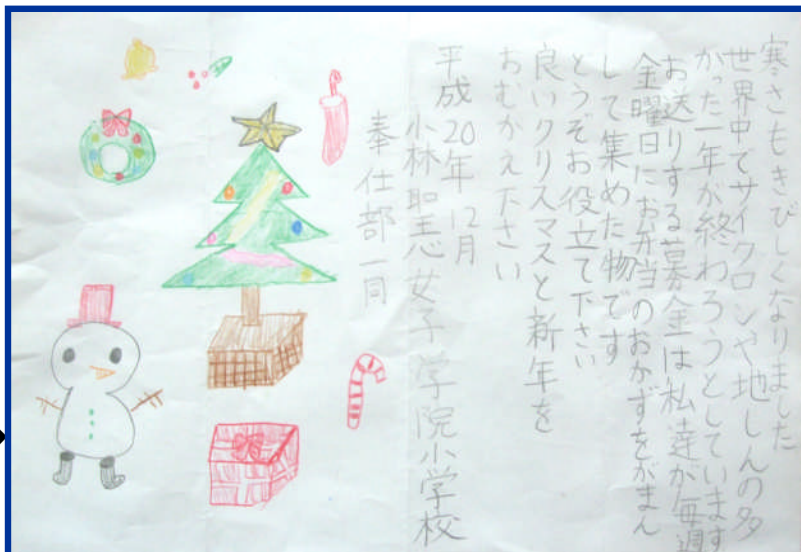 寒さもきびしくなりました
世界中でサイクロンや地しんの多
かった一年が終わろうとしています
お送りする募金は私達が毎週
金曜日にお弁当のおかずをがまん
して集めた物です
どうぞお役立て下さい
良いクリスマスと新年を
おむかえ下さい
平成20年12月
小林聖心女子学院小学校
奉仕部一同